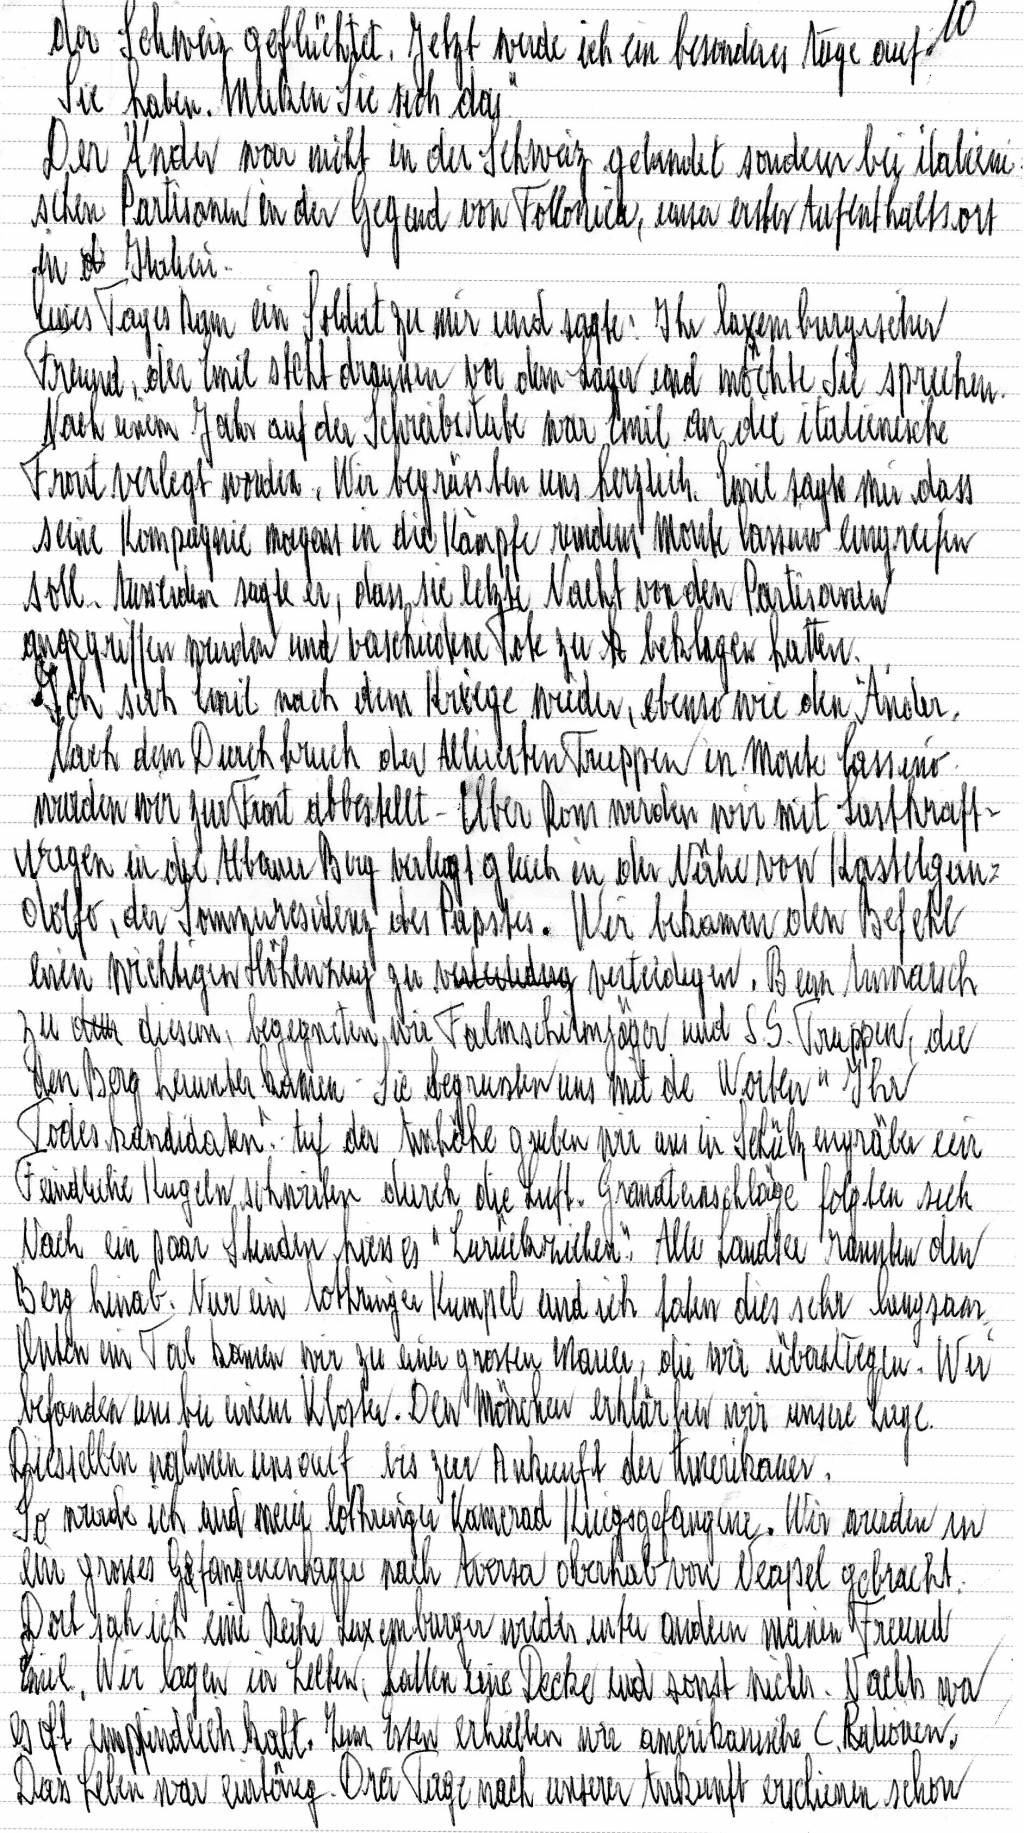 10
der Schweiz geflüchtet. Jetzt werde ich ein besonderes Auge auf
Sie haben. Merken Sie sich das"
Der Änder war nicht in der Schweiz gelandet sondern bei italieni-
schen Partisanen in der Gegend von Follonica, unser erster Aufenthaltsort
in Italien.
Eines Tages kam ein Soldat zu mir und sagte: Ihr luxemburgischer
Freund, der Emil steht draussen vor dem Lager und möchte Sie sprechen.
Nach einem Jahr auf der Schreibstube war Emil an die italienische
Front verlegt worden. Wir begrüssten uns herzlich. Emil sagte mir dass
seine Kompagnie morgen in die Kämpfe rundum Monte Cassino eingreifen
soll. Ausserdem sagte er, dass sie letzte Nacht von den Partisanen
angegriffen wurden und verschiedene Tote zu beklagen hatten.
Ich sah Emil nach dem Kriege wieder, ebenso wie den Änder.
Nach dem Durchbruch der Alliierten Truppen in Monte Cassino
wurden wir zur Front abbestellt - Über Rom wurden wir mit Lastkraft-
wagen in die Albaner Berg verlegt gleich in der Nähe von Kastelgan-
dolfo, der Sommerresidenz des Papstes. Wir bekamen den Befehl
einen wichtigen Höhenzug zu verteidigen. Beim Anmarsch
zu diesem, begegneten wir Fallmschirmjäger und S.S. Truppen, die
den Berg herunter kamen - Sie begrussten uns mit de Worten " Ihr
Todeskandidaten". Auf der Anhöhe gruben wir uns in Schützengräber ein
Feindliche Kugeln schwirten durch die Luft. Granatenschläge folgten sich
Nach ein paar Stunden hiess es "Zurückziehen". Alle Landser rannten den
Berg hinab. Nur ein lothringer Kumpel und ich taten dies sehr langsam.
Unten im Tal kamen wir zu einer grossen Mauer, die wir überstiegen. Wir
befanden uns bei einem Kloster. Den Mönchen erklärten wir unsere Lage.
Diesselben nahmen uns auf bis zur Ankunft der Amerikaner.
So wurde ich und mein lothringer Kamerad Kriegsgefangene. Wir wurden in
ein grosses Gefangenenlager nach Aversa oberhalb von Neapel gebracht.
Dort sah ich eine Reihe Luxemburger wieder unter andern meinen Freund
Emil. Wir lagen in Zelten, hatten eine Decke und sonst nichts. Nachts wa
es oft empfindlich kalt. Zum Essen erhielten wir amerikanische C. Rationen.
Das Leben war eintönig. Drei Tage nach unserer Ankunft erschienen schon